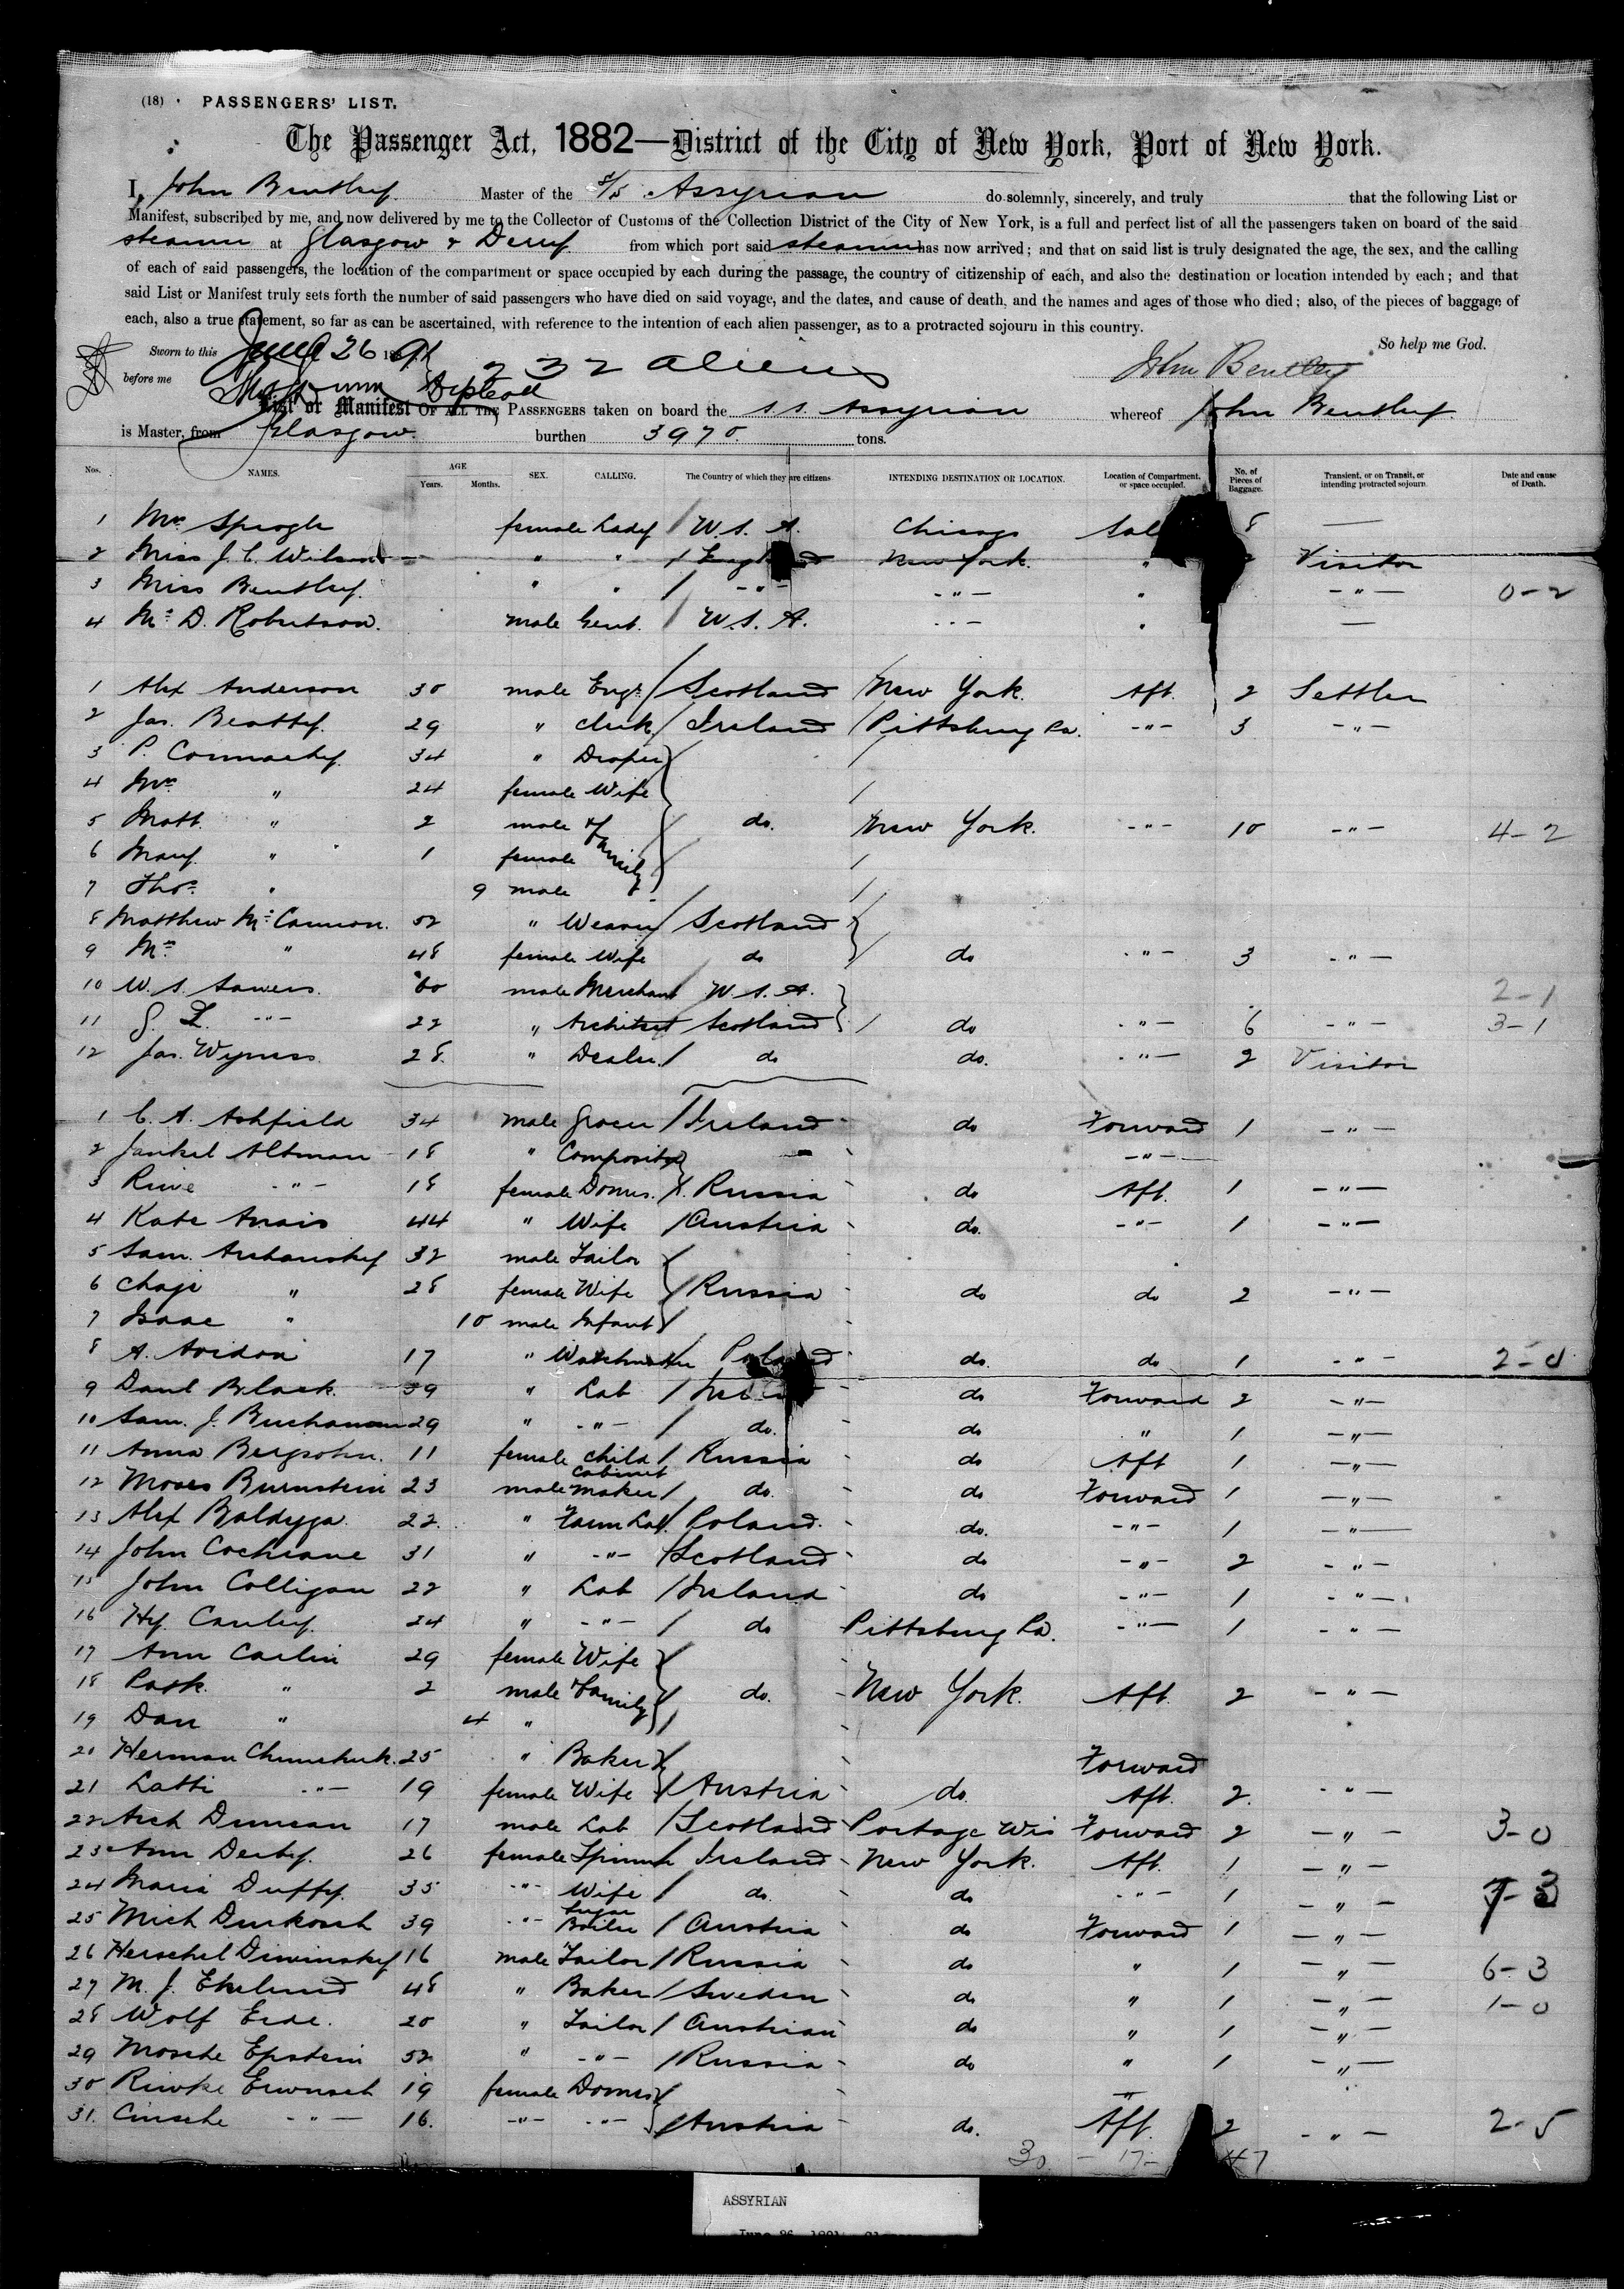 (18) PASSENGERS' LIST.
The Passenger Act, 1882—District of the City of New York, Port of New York.
I, John Bentley Master of the S/S Assyrian do solemnly, sincerely, and truly that the following List or
Manifest, subscribed by me, and now delivered by me to the Collector of Customs of the Collection District of the City of New York, is a full and perfect list of all the passengers taken on board of the said
steamer at Glasgow & Derry from which port said steamer has now arrived; and that on said list is truly designated the age, the sex, and the calling
of each of said passengers, the location of the compartment or space occupied by each during the passage, the country of citizenship of each, and also the destination or location intended by each; and that
said List or Manifest truly sets forth the number of said passengers who have died on said voyage, and the dates, and cause of death, and the names and ages of those who died; also, of the pieces of baggage of
each, also a true statement, so far as can be ascertained, with reference to the intention of each alien passenger, as to a protracted sojourn in this country.
So help me God.
Sworn to this June 26 1891
before me
232 aliens
John Bentley
List or Manifest OF ALL THE PASSENGERS taken on board the S.S. Assyrian whereof John Bentley
is Master, from Glasgow. burthen 3970. tons.
Nos. NAMES. AGE Years. Months. SEX. CALLING. The Country of which they are citizens INTENDING DESTINATION OR LOCATION. Location of Compartment, or space occupied. No. of Pieces of Baggage. Transient, or on Transit, or intending protracted sojourn. Date and cause of Death.
1 Mrs Sprogle female Lady / U.S.A. Chicago Sal 8 —
2 Miss J. C. Wilson — " " / England New York. " Visitor
3 Miss Bentley. " " / - " - - " - " - " - 0-2
4 Mr D. Robertson. male Gent. / U.S.A. - " - " —
1 Alex Anderson 30 male Engr / Scotland / New York. Aft. 2 Settler
2 Jas. Beattey. 29 " Clerk / Ireland / Pittsburg Pa. - " - 3 - " -
3 P. 34 " Draper
4 Mrs " 24 female Wife /
5 Matt. " 2 male & family do. New York. - " - 10 - " - 4-2
6 Mary. " 1 female /
7 Thos. " 9 male /
8 Matthew McCannon. 52 " Weaver / Scotland
9 Mrs " 48 female Wife do / do - " - 3 - " -
10 W. S. Sawers. 60 male Merchant U.S.A. 2-1
11 G. L. - " - 22 " Architect Scotland / do - " - 6 - " - 3-1
12 Jas. Wyness. 28. " Dealer / do do. - " - 2 Visitor
1 C. A. Ashfield 34 male Grocer / Ireland do Forward 1 - " -
2 Jankel Altman 18 " Compositor - " -
3 Riwe - " - 18 female Domes. /. Russia do Aft. 1 - " -
4 Kate Anais 44 " Wife / Austria do. - " - 1 - " -
5 Sam. 32 male Tailor
6 Chaje " 28 female Wife / Russia do do 2 - " -
7 Isaac " 10 male Infant /
8 A. Avidon 17 " Watchmaker Poland do. do 1 - " - 2-0
9 Danl Black. 39 " Lab / do Forward 2 - " -
10 Sam. J. Buchanan 29 " - " - / do. do " 1 - " -
11 Anna Bergsohn. 11 female child / Russia do Aft 1 - " -
12 Moses Burnstein 23 male Cabinet maker / do. do Forward 1 - " -
13 Alex Baldyga. 22. " Farm Lab. / Poland. do. - " - 1 - " -
14 John Cochrane 31 " - " - / Scotland do - " - 2 - " -
15 John Colligan 22 " Lab / Ireland do - " - 1 - " -
16 Hy. Cauley. 24 " - " - / do Pittsburg Pa. - " - 1 - " -
17 Ann Carlin 29 female Wife
18 Patk. " 2 male Family / do. New York. Aft. 2 - " -
19 Dan " 4 " /
20 Herman 25 " Baker / Forward
21 Latti - " - 19 female Wife / Austria do. Aft. 2. - " -
22 Arch Duncan 17 male Lab / Scotland Portage Wis Forward 2 - " - 3-0
23 Ann Derby. 26 female Spinner Ireland New York. Aft. 1 - " -
24 Maria Duffy. 35 - " - Wife / do. do - " - 1 - " -
25 Mich 39 - " - Sugar Boiler / Austria do Forward 1 - " -
26 Herschel Diwinskey 16 male Tailor / Russia do " 1 - " - 6-3
27 M. J. Ekelund 48 " Baker / Sweden do " 1 - " - 1-0
28 Wolf Erde. 20 " Tailor / Austrian do " 1 - " -
29 Mosche Epstein 52 " - " - / Russia do " 1 - " -
30 Riwke 19 female Domes /
31. Cinsche - " - 16. - " - - " - / Austria do. Aft. 2 - " - 2-5
30 - 17 - 47
ASSYRIAN